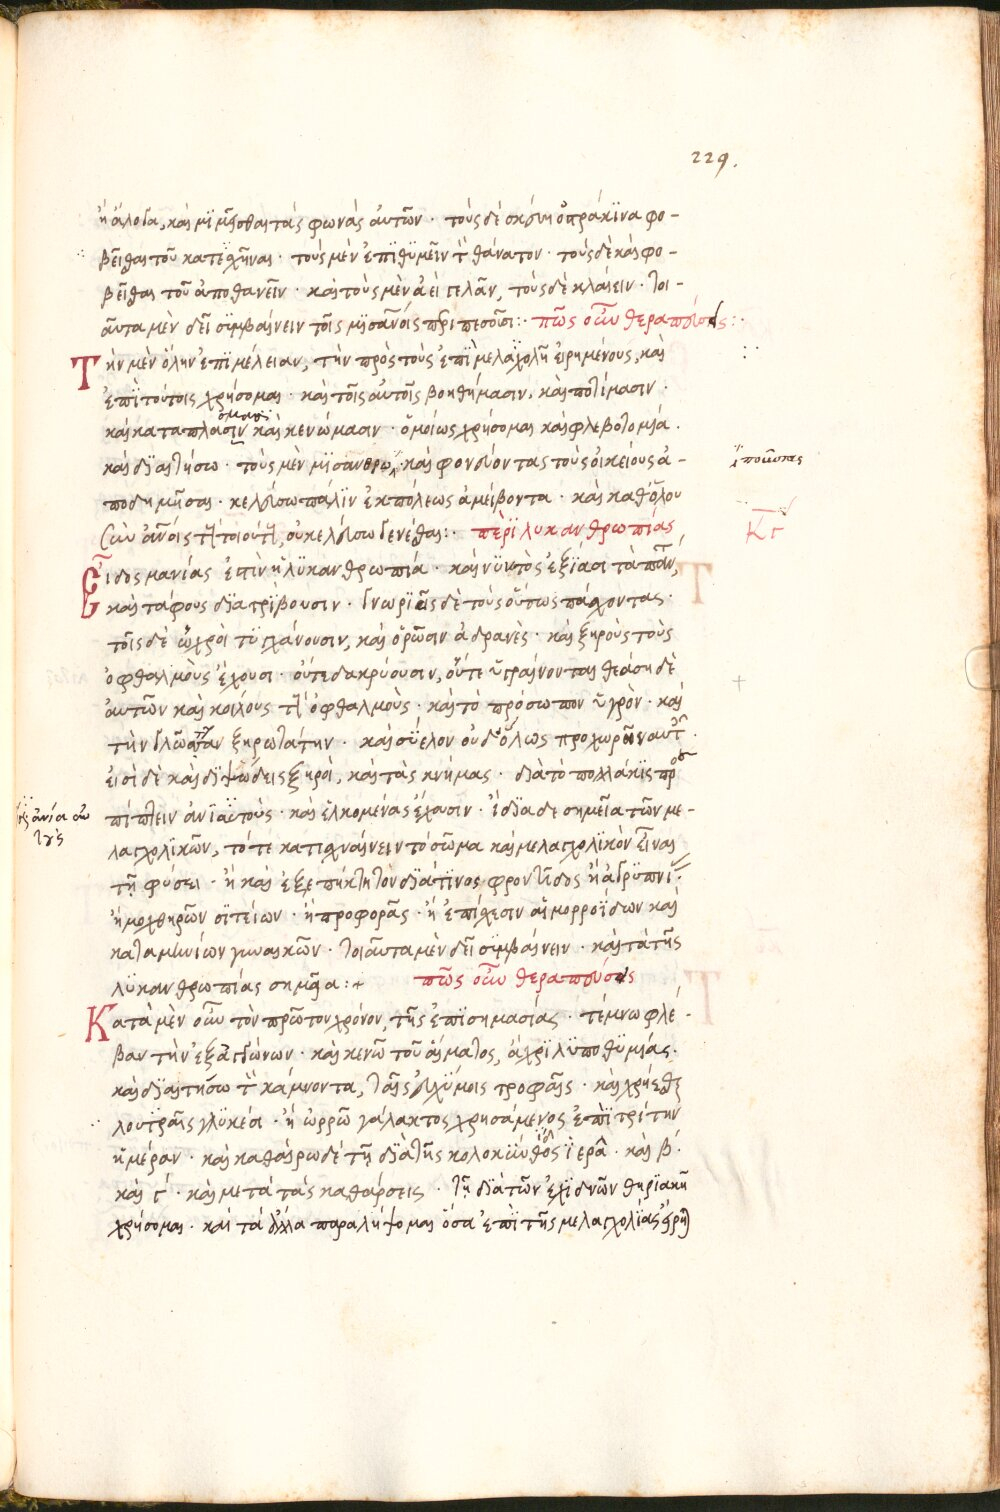 229.
ἢ ἄλογα, καὶ μιμεῖσθαι τὰς φωνὰς αὐτῶν · τοὺς δὲ σκεύη ὀστράκινα φο-
βεῖσθαι τοῦ κατεχῆναι · τοὺς μὲν ἐπιθυμεῖν τὸν θάνατον · τοὺς δὲ καὶ φο-
βεῖσθαι τοῦ ἀποθανεῖν · καὶ τοὺς μὲν ἀεὶ γελᾶν, τοὺς δὲ κλαίειν · τοι-
αῦτα μὲν δεῖ συμβαίνειν τοῖς μισανοις περιπεσοῦσι :· πῶς οὖν θεραπεύσεις :·
Τὴν μὲν ὅλην ἐπιμέλειαν, τὴν πρὸς τοὺς ἐπὶ μελαγχολῆ εἰρημένους, καὶ
ἐπὶ τούτοις χρήσομαι · καὶ τοῖς αὐτοῖς βοηθήμασιν, καὶ ποτίμασιν ·
καὶ καταπλασιν καὶ κενώμασιν · ὁμοίως χρήσομαι καὶ φλεβοτομία ·
καὶ διαιτήσω · τοὺς μὲν μισανθρω · καὶ φονεύοντας τοὺς οἰκείους ἀ-
ποδημῆσαι · κελεύσω πάλιν ἐκ πόλεως ἀμείβοντα · καὶ καθόλου
σὺν ἀνοις τοιούτ, οὐ κελεύσω γενέσθαι :· περὶ λυκανθρωπίας
ΚΓ
Εἶδος μανίας ἐστὶν ἡ λυκανθρωπία · καὶ νυκτὸς ἐξίασι τὰ πάντ,
καὶ τάφους διατρίβουσιν · γνωριεῖς δὲ τοὺς οὕτως πάσχοντας ·
τοῖσδε ὠχροὶ τυγχάνουσιν, καὶ ὁρῶσιν ἀδρανὲς · καὶ ξηροὺς τοὺς
ὀφθαλμοὺς ἔχουσι · οὔτε δακρύουσιν, οὔτε ὑγραίνονται θεάσῃ δὲ
αὐτῶν καὶ κοίλους τ ὀφθαλμοὺς · καὶ τὸ πρόσωπον ὑγρὸν · καὶ
τὴν γλῶσσαν ξηροτάτην · καὶ σύελον οὐδ' ὅλως προχωρεῖν αὐτ ·
εἰσὶ δὲ καὶ διψώδεις ξηροὶ, καὶ τὰς κνήμας · διὰ τὸ πολλάκις προσ
πίπτειν ἀνιάτους · καὶ εἱλκομένας ἔχασιν · ἴδια δὲ σημεῖα τῶν με-
λαγχολικῶν, τότε κατισχναίνειν τὸ σῶμα καὶ μελαγχολικὸν εἶναι
τῇ φύσει · ἢ καὶ ἐξ ἐπίκτητον διά τινος φροντίδος ἢ ἀγρυπνί
ἢ μοχθηρῶν σιτείων · ἢ προφορᾶς · ἢ ἐπίσχεσιν αἱμορροΐδων καὶ
καταμηνίων γυναικῶν · τοιαῦτα μὲν δεῖ συμβαίνειν · καὶ τὰ τῆς
λυκανθρωπίας σημεῖα :+ πῶς οὖν θεραπεύσεις
Κατὰ μὲν οὖν τὸν πρῶτον χρόνον, τῆς ἐπισημασίας · τέμνω φλέ-
βαν τὴν ἐξ ἀγκώνων · καὶ κενῶ τοῦ αἵματος, ἄχρι λυποθυμίας ·
καὶ διαιτήσω τὸν κάμνοντα, ταῖς εὐχύμοις τροφαῖς · καὶ χρήσθ
λουτραῖς γλυκέσι · ἢ ὠρρῶ γάλακτος χρησάμενος ἐπὶ τρίτην
ἡμέραν · καὶ καθαίρω δὲ τῇ διὰ τῆς κολοκύνθος ἱερᾶ · καὶ β ·
καὶ γ · καὶ μετὰ τὰς καθάρσεις · τῇ διὰ τῶν ἐχιδνῶν θηριακῆ
χρήσομαι · καὶ τὰ ἄλλα παραλήψομαι ὅσα ἐπὶ τῆς μελαγχολίας εἴρη